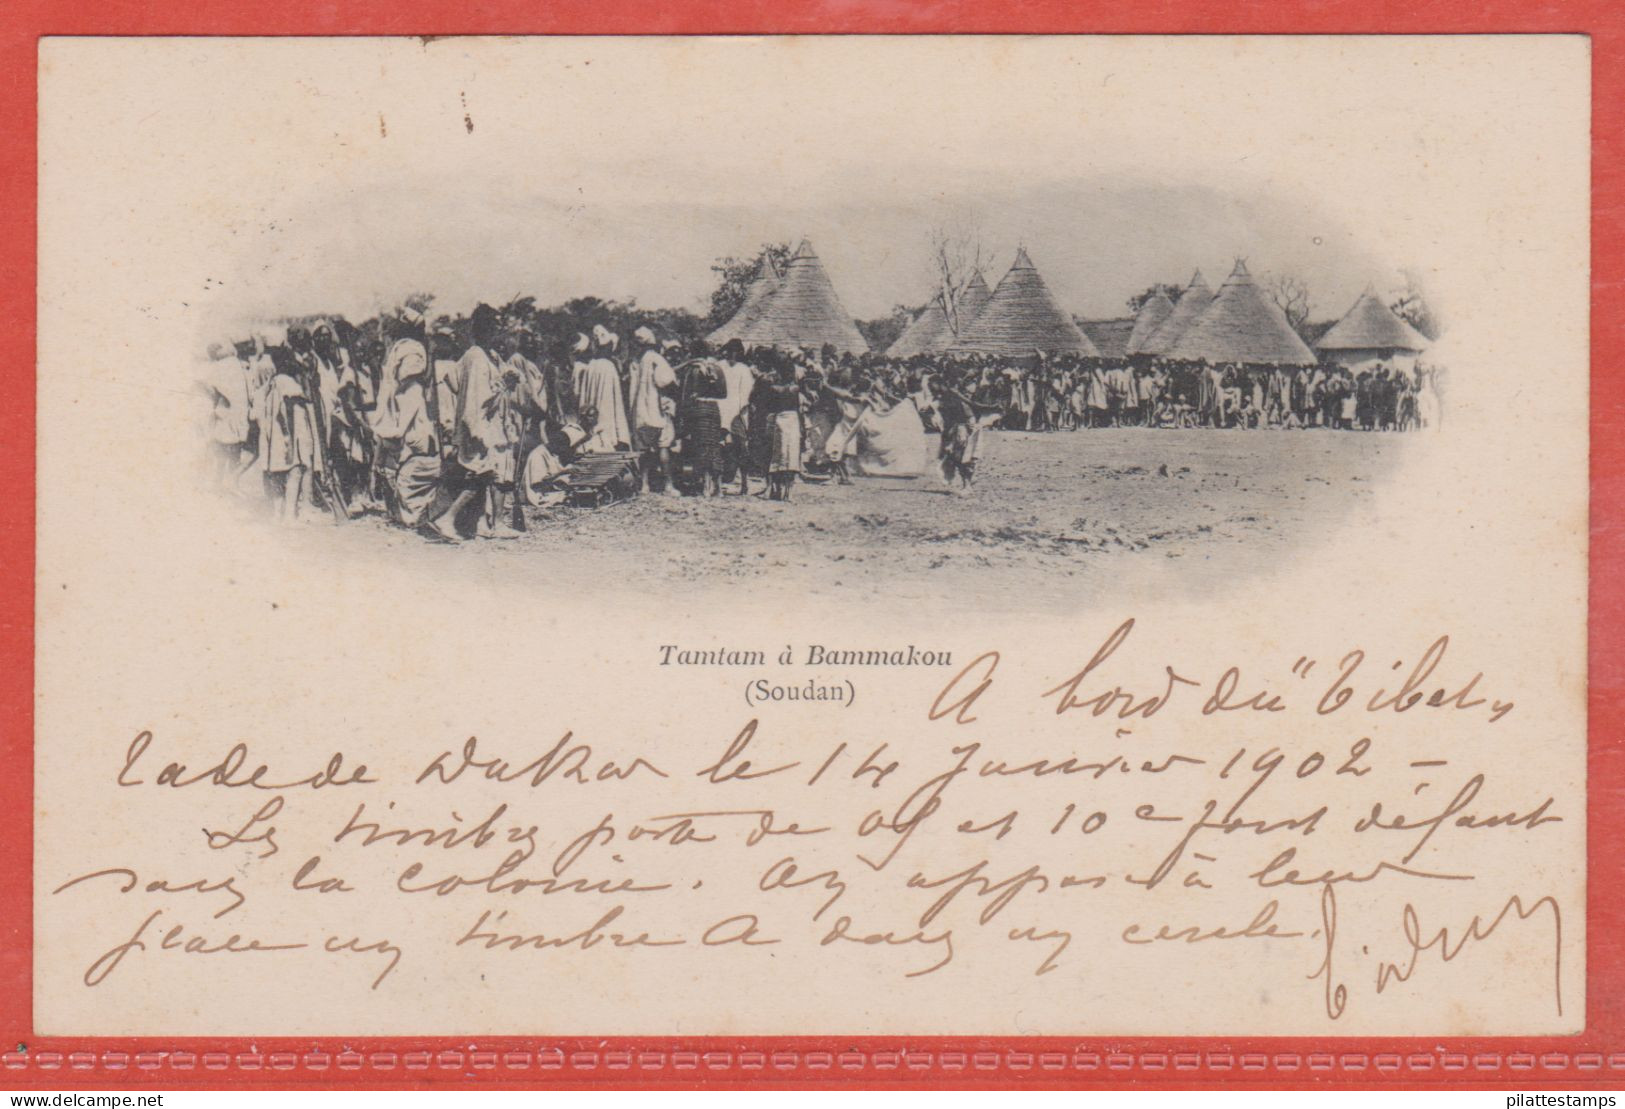 Tamtam à Bammakou
(Soudan)
A bord du "Tibet"
rade de Dakar le 14 Janvier 1902 -
Les timbres poste de 05 et 10c font défaut
dans la colonie. On appose à leur
place un timbre A dans un cercle.
delcampe.net
pilattestamps